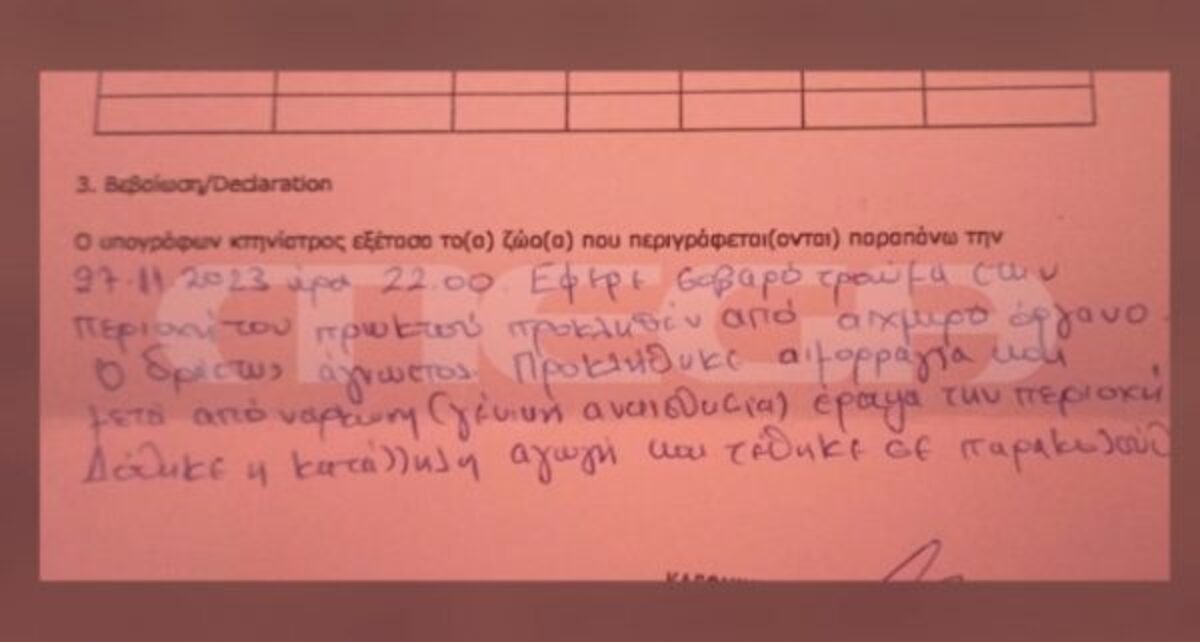 3. Βεβαίωση/Declaration
Ο υπογράφων κτηνίατρος εξέτασα το(α) ζώο(α) που περιγράφεται(ονται) παραπάνω την
27.11.2023 ώρα 22.00. Έφερε σοβαρό τραύμα στην
περιοχή του πρωκτού προκληθέν από αιχμηρό όργανο.
Ο δράστης άγνωστος. Προκλήθηκε αιμορραγία και
μετά από νάρκωση (γενική αναισθησία) έραψα την περιοχή
Δόθηκε η κατάλληλη αγωγή και τέθηκε σε παρακολούθ